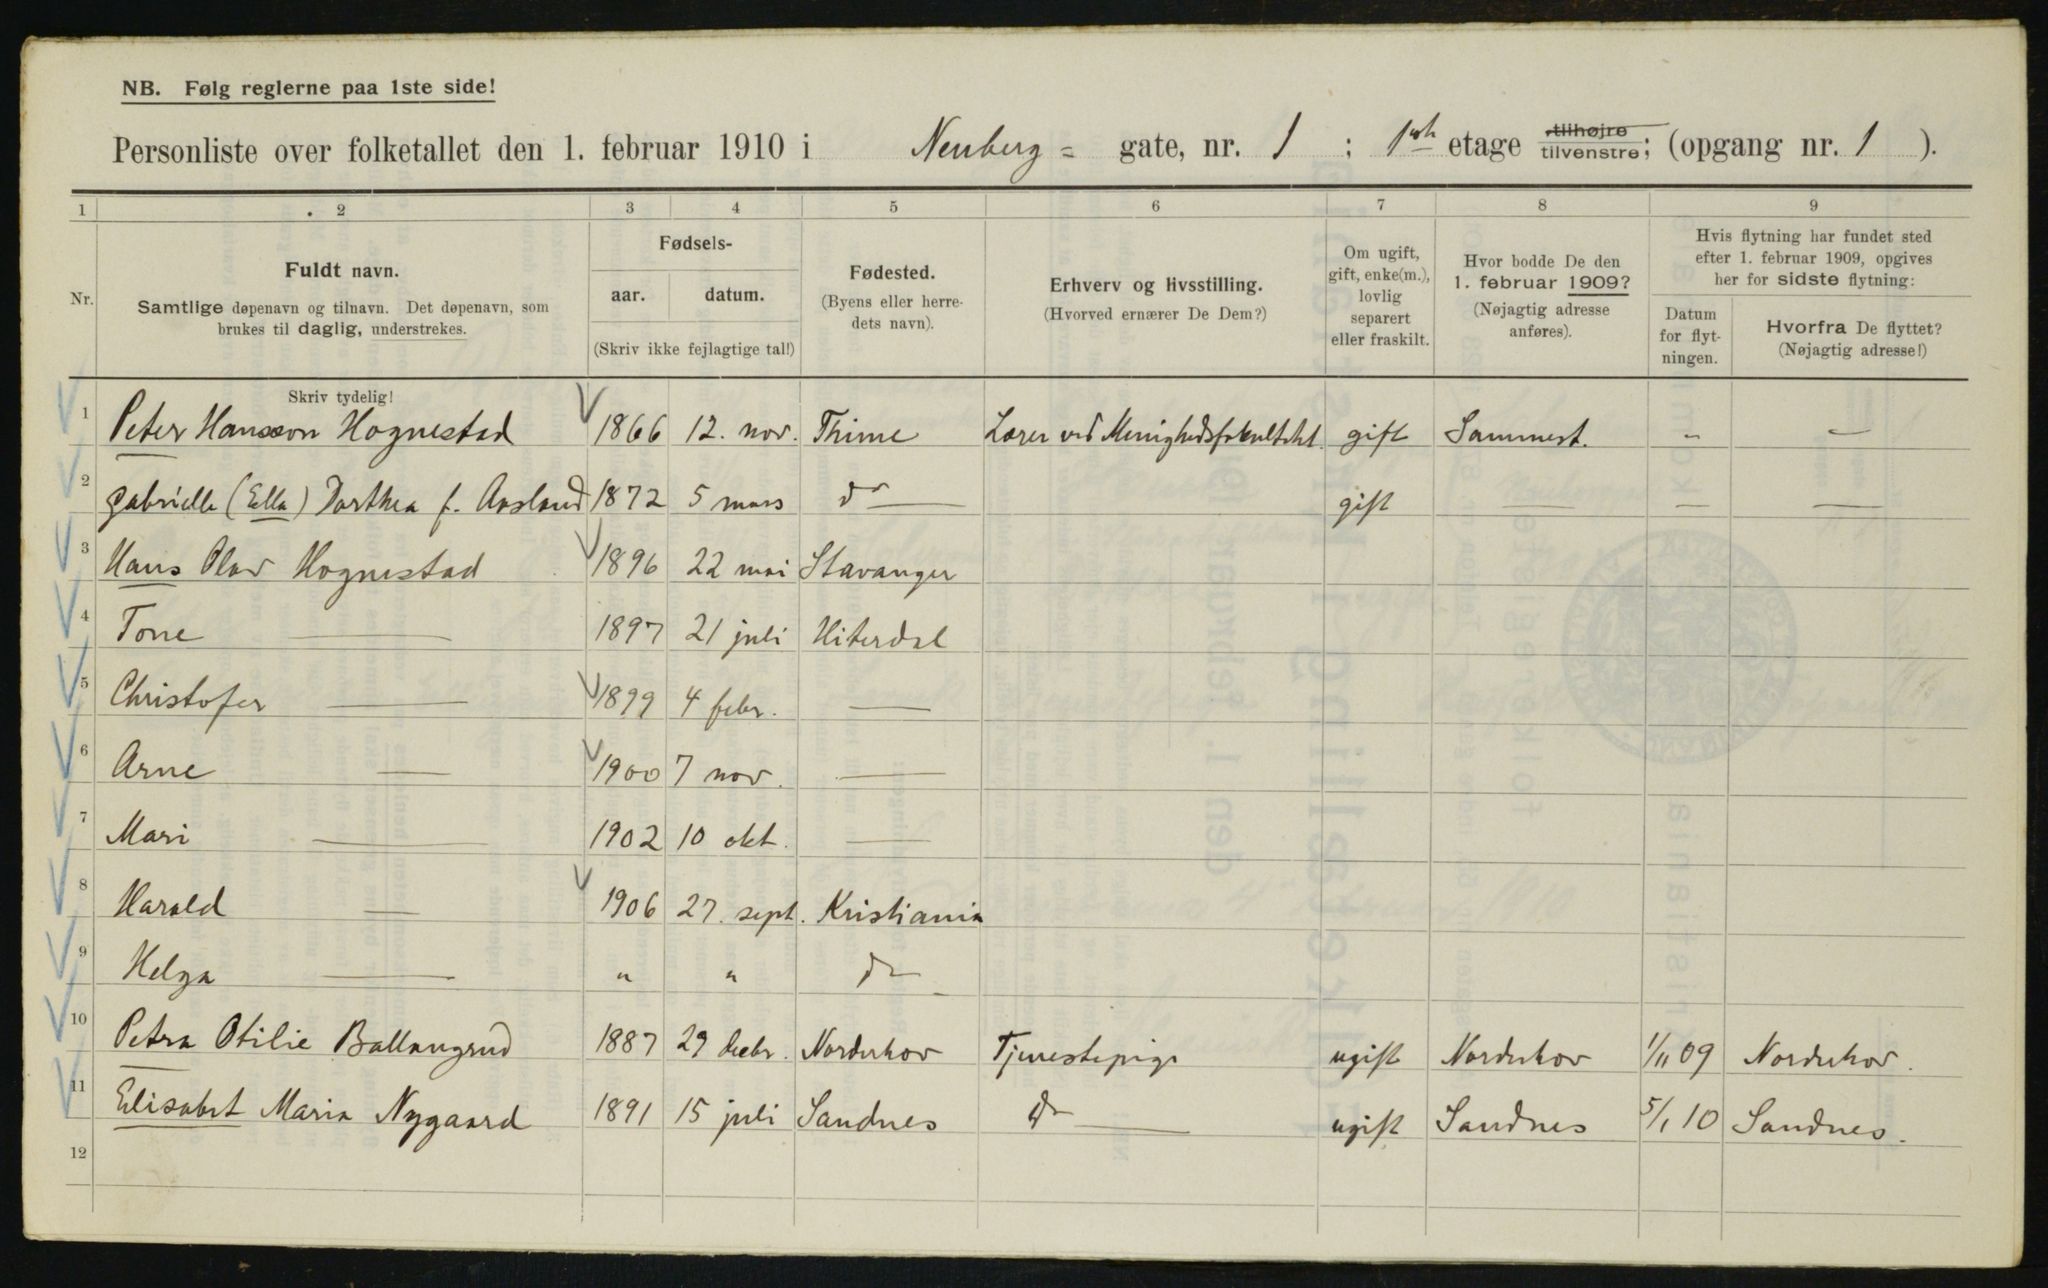 NB. Følg reglerne paa 1ste side!
Personliste over folketallet den 1. februar 1910 i Neuberg = gate, nr. 1 ; 1ste etage tilhøjre tilvenstre; (opgang nr. 1 ).
1 2 3 4 5 6 7 8 9
Nr.
Fuldt navn.
Samtlige døpenavn og tilnavn. Det døpenavn, som
brukes til daglig, understrekes.
Fødsels-
aar. datum.
(Skriv ikke fejlagtige tal!)
Fødested.
(Byens eller herre-
dets navn).
Erhverv og livsstilling.
(Hvorved ernærer De Dem?)
Om ugift,
gift, enke(m.),
lovlig
separert
eller fraskilt.
Hvor bodde De den
1. februar 1909?
(Nøjagtig adresse
anføres).
Hvis flytning har fundet sted
efter 1. februar 1909, opgives
her for sidste flytning:
Datum
for flyt-
ningen.
Hvorfra De flyttet?
(Nøjagtig adresse!)
Skriv tydelig!
1 Peter Hansson Hognestad 1866 12. nov. Thime Lærer ved Menighedsfakultetet. gift Sammest. „ —
2 Gabrielle (Ella) Dorthea f. Aasland 1872 5 mars do — gift — — —
3 Hans Olav Hognestad 1896 22 mai Stavanger
4 Tone — 1897 21 juli Hiterdal
5 Christofer — 1899 4 febr. —
6 Arne — 1900 7 nov. —
7 Mari — 1902 10 okt. —
8 Harald — 1906 27. sept. Kristiania
9 Helga — „ „ do
10 Petra Otilie Ballangrud 1887 29 decbr. Norderhov Tjenestepige ugift Norderhov 1/11 09 Norderhov.
11 Elisabet Maria Nygaard 1891 15 juli Sandnes do — ugift Sandnes 5/1 10 Sandnes.
12